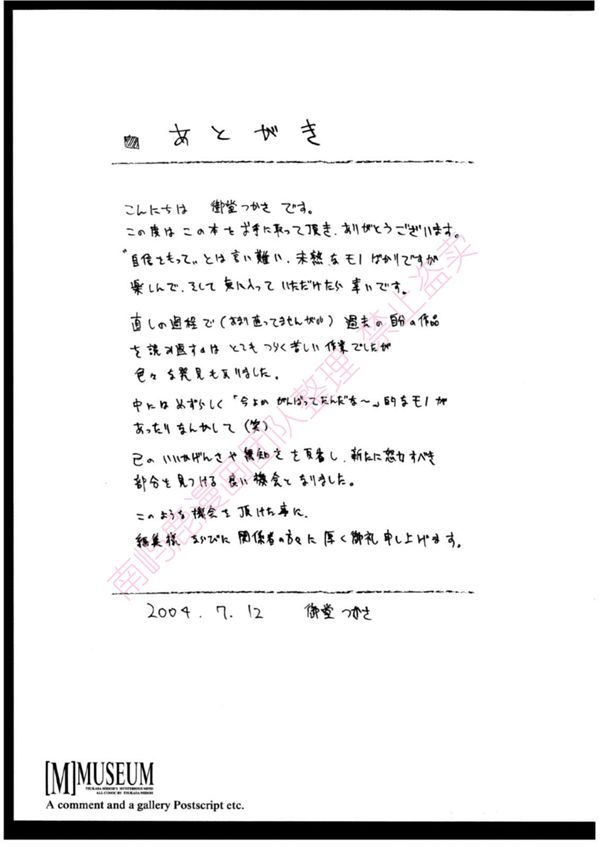 あとがき
こんにちは 御堂つかさ です。
この度は この本を お手に取って頂き、ありがとうございます。
"自信をもって"とは言い難い、未熟なモノばかりですが
楽しんで、そして 気に入って いただけたら 幸いです。
直しの過程で(あまり直ってませんが) 過去の自分の作品
を読み返すのは とてもつらく苦しい 作業でしたが
色々な発見もありました。
中には めずらしく「今よりがんばってたんだな〜」的なモノが
あったりなんかして(笑)
己の いいかげんさや 無知さを反省し、新たに努力すべき
部分を見つける 良い機会となりました。
このような機会を頂けた事に、
編集様 ならびに 関係者の方々に 厚く御礼申し上げます。
2004.7.12 御堂つかさ
南屿鹿漫画团队整理 禁止盗卖
[M]MUSEUM
A comment and a gallery Postscript etc.